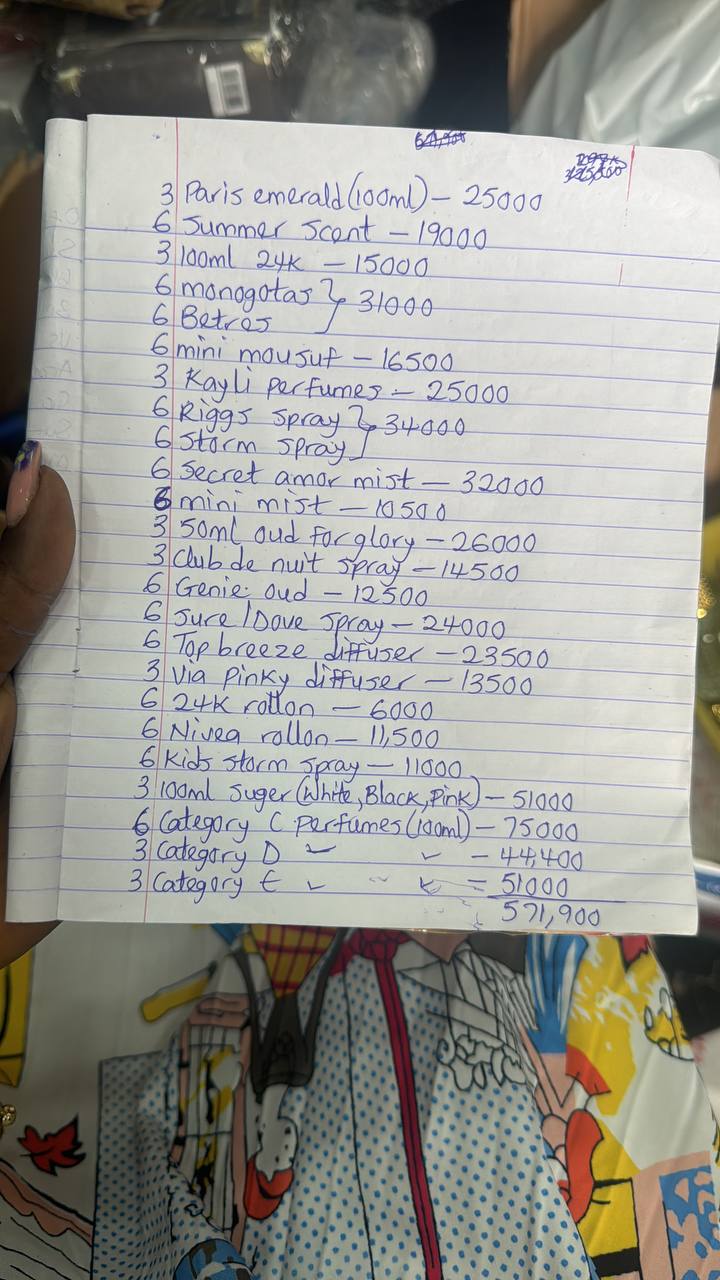 3 Paris emerald (100ml) – 25000
6 Summer Scent – 19000
3 100ml 24K – 15000
6 monogotas } 31000
6 Betres
6 mini mousuf – 16500
3 Kayli perfumes – 25000
6 Riggs spray } 34000
6 Storm spray
6 Secret amor mist – 32000
6 mini mist – 10500
3 50ml oud for glory – 26000
3 Club de nuit spray – 14500
6 Genie oud – 12500
6 Sure / Dove spray – 24000
6 Top breeze diffuser – 23500
3 Via Pinky diffuser – 13500
6 24K rollon – 6000
6 Nivea rollon – 11,500
6 Kids storm spray – 11000
3 100ml Suger (White, Black, Pink) – 51000
6 Category C perfumes (100ml) – 75000
3 Category D ✓ ✓ – 44,400
3 Category E ✓ ✓ = 51000
571,900